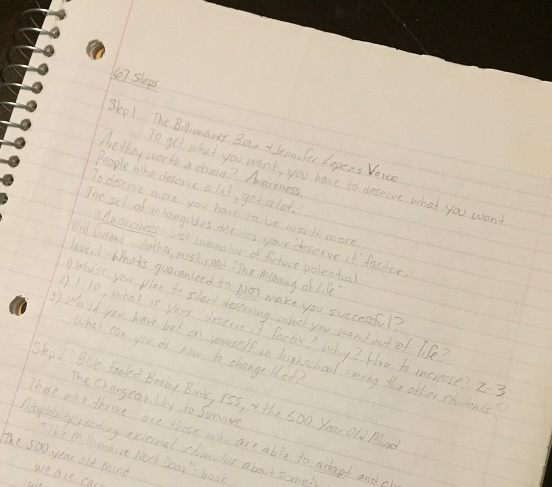 67 Steps
Step 1: The Billionaire's Brain & Jennifer Lopez's Voice
To get what you want, you have to deserve what you want
Are they worth a damn? Awareness
People who deserve a lot, get a lot.
To deserve more you have to be worth more
The set of intangibles decides your "deserve it" factor.
Awareness best indicator of future potential
Will Durant author, must read "The Meaning of Life"
Invert - What's guaranteed to NOT make you successful?
1) What's your plan to start deserving what you want out of life?
2) 1-10, what is your deserve it factor? Why? How to increase? 2-3
3) Would you have bet on yourself in highschool among the other students?
What can you do now to change that?
Step 2: Blue-Footed Booby Birds, RSS, & the 500 Year Old Mind
The Changeability to Survive
Those who thrive are those who are able to adapt and
Adaptably reading external stimulus about
"The Millionaire Next Door" - book
The 500 year old mind
we are